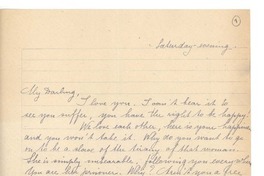 1
Saturday evening.
My Darling,
I love you. I can't bear it to
see you suffer, you have the right to be happy.
We love each other, here is your happiness
and you won't take it. Why do you want to go
on to be a slave of the tirany of that woman.
She is simply unbearable, following you everywhere
you are her prisoner. Why? Aren't you a free